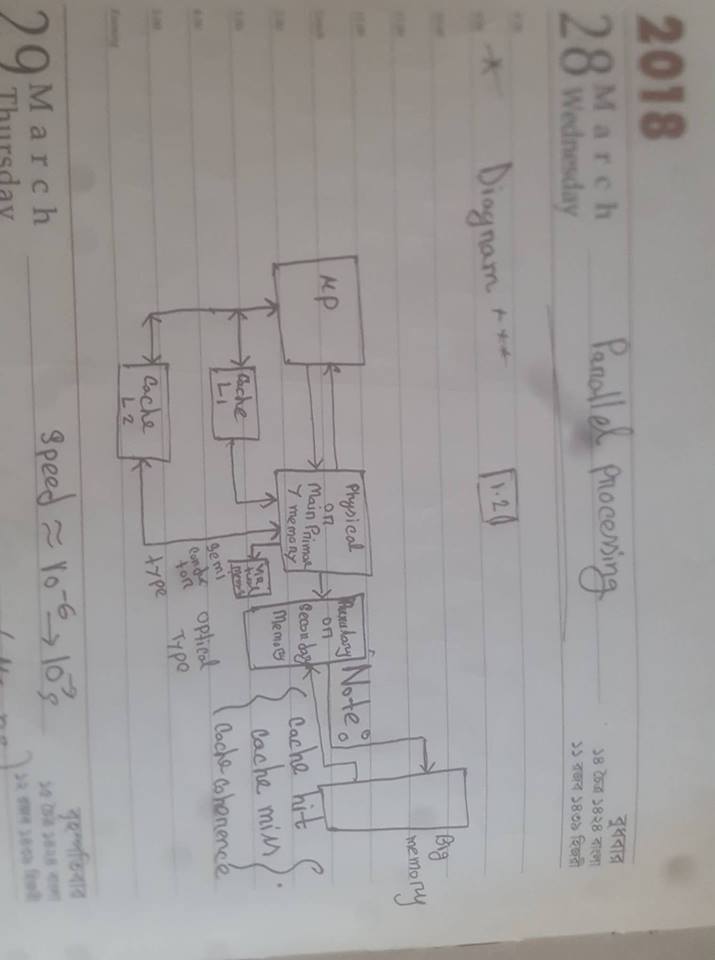 2018
28 March
Wednesday
Parallel Processing
বুধবার
১৪ চৈত্র ১৪২৪ বাংলা
১১ রজব ১৪৩৯ হিজরী
* Diagram ***
1.2
Big
memory
MP
Physical
or
Main Primar
y memory
or
Secondary
Memory
Note:
cache hit
cache miss
cache coherence
Cache
L1
Semi
conduc
tor
type
Optical
Type
Cache
L2
Evening
29 March
Thursday
Speed ≈ 10⁻⁶ → 10⁻⁹s
বৃহস্পতিবার
১৫ চৈত্র ১৪২৪ বাংলা
১২ রজব ১৪৩৯ হিজরী